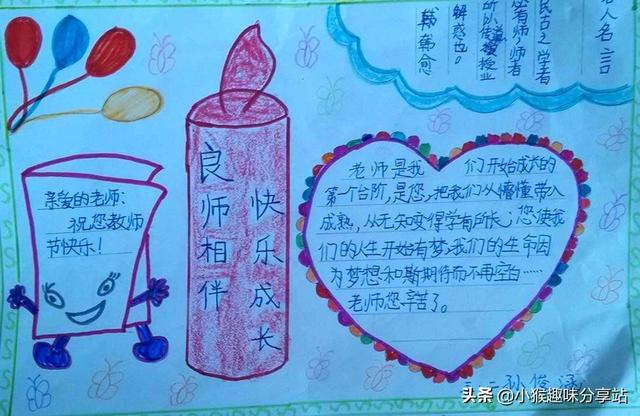 人名言
古之学者
必有师,师者
所以传道授业
解惑也。
韩愈
良师相伴
快乐成长
亲爱的老师:
祝您教师
节快乐!
老师是我们开始成长的
第一个台阶,是您,把我们从懵懂带入
成熟,从无知变得学有所长;您使我
们的人生开始有梦;我们的生命因
为梦想和期待而不再空白……
老师您辛苦了。
孙俊
头条 @小猴趣味分享站